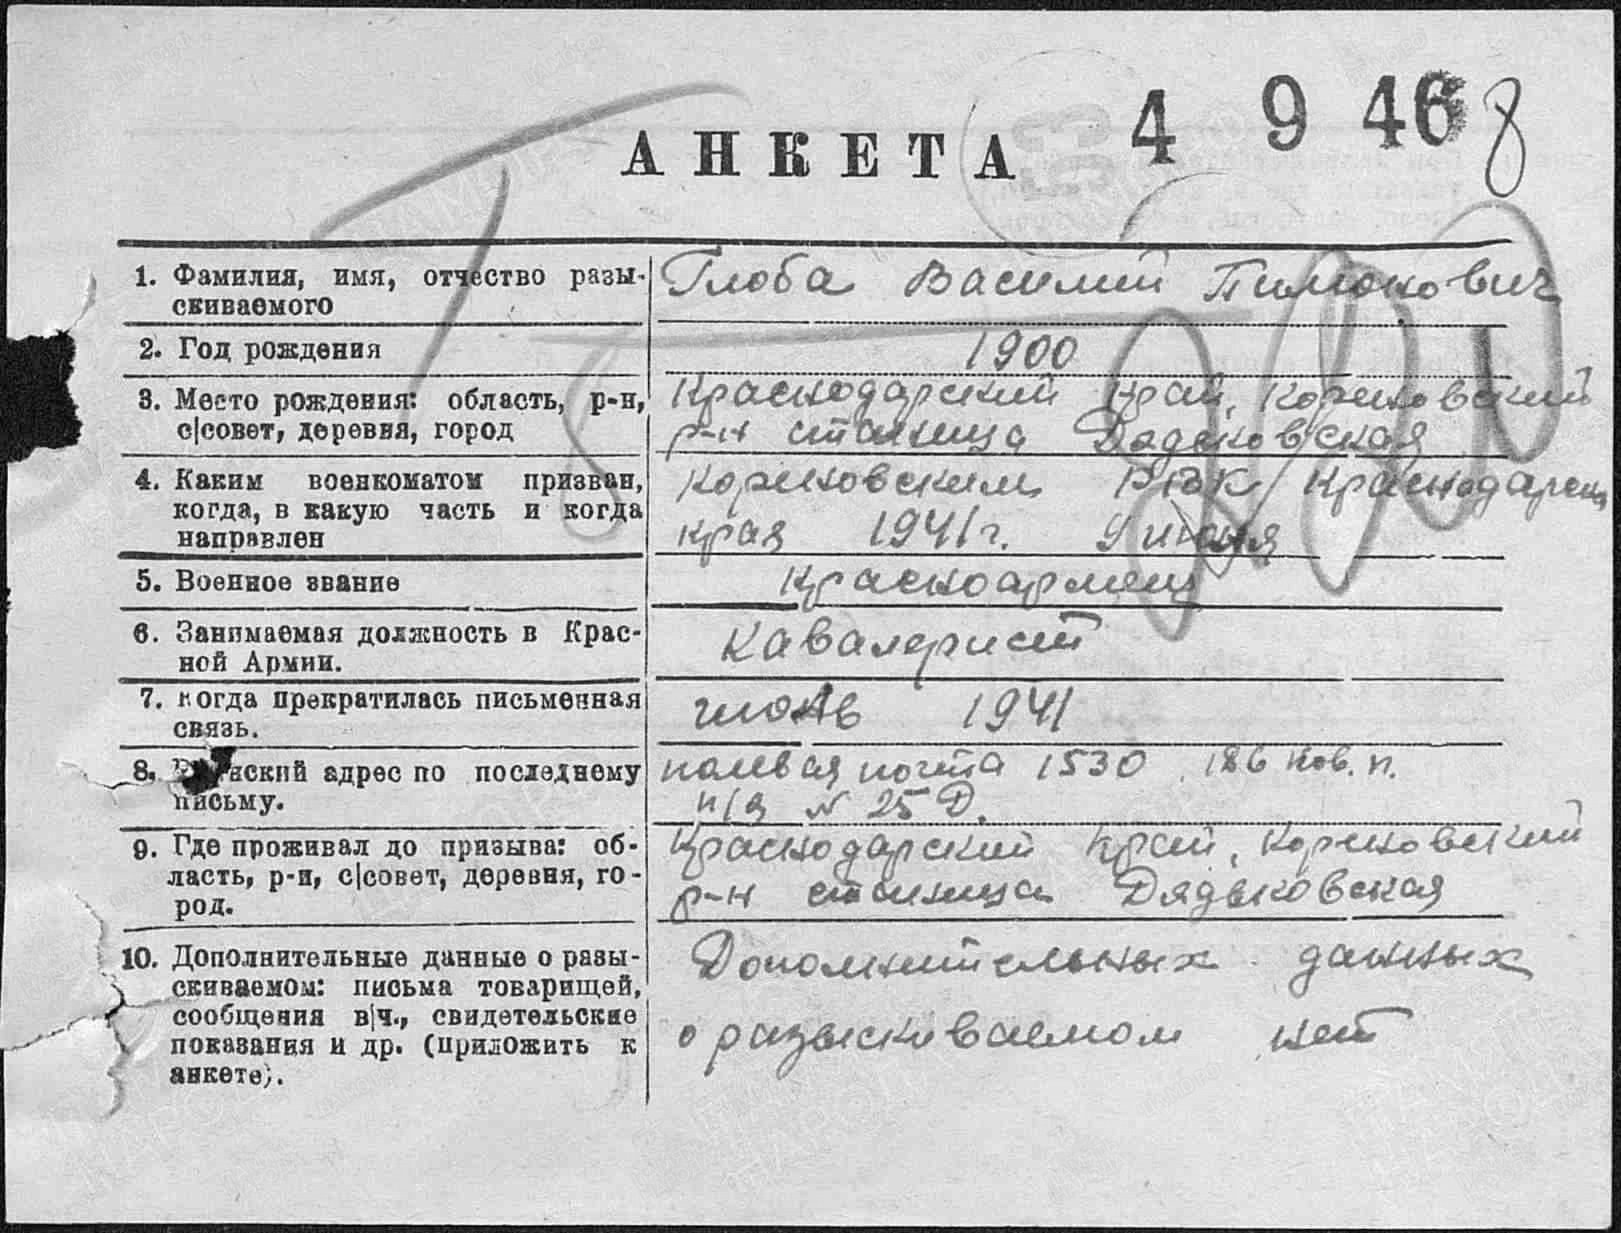 АНКЕТА 4 9 46 8
1. Фамилия, имя, отчество разы-
скиваемого
Глоба Василий Тимонович
2. Год рождения
1900
3. Место рождения: область, р-н,
с|совет, деревня, город
Краснодарский край, Кореновский
р-н станица Дядьковская
4. Каким военкоматом призван,
когда, в какую часть и когда
направлен
Кореновским РВК Краснодарск
края 1941 г. 9
5. Военное звание
Красноармеец
6. Занимаемая должность в Крас-
ной Армии.
Кавалерист
7. Когда прекратилась письменная
связь.
1941
8. адрес по последнему
письму.
полевая почта 1530 186 п.
п/я № 25 Д.
9. Где проживал до призыва: об-
ласть, р-н, с|совет, деревня, го-
род.
Краснодарский край, Кореновский
р-н станица Дядьковская
10. Дополнительные данные о разы-
скиваемом: письма товарищей,
сообщения в|ч., свидетельские
показания и др. (приложить к
анкете).
Дополнительных данных
о разыскиваемом нет